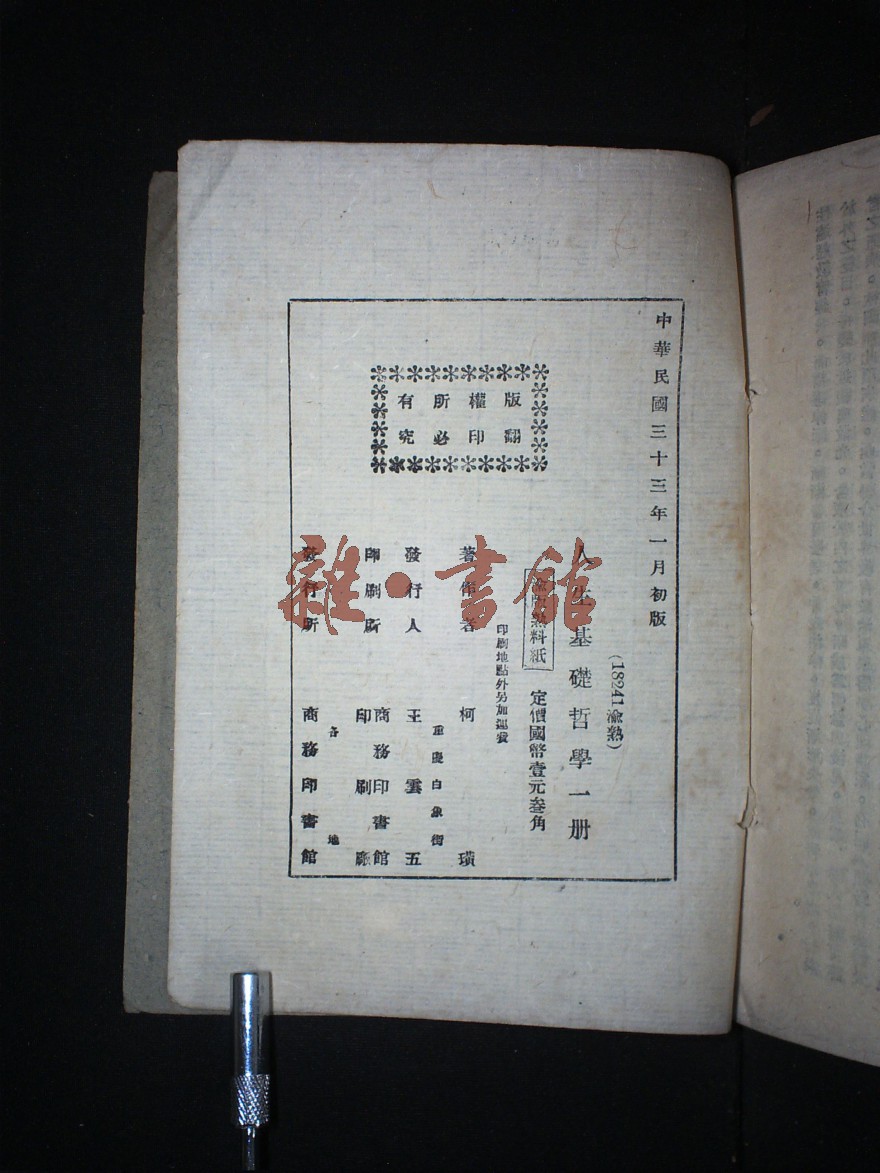 中華民國三十三年一月初版
版權所有
翻印必究
(18241渝熟)
人生基礎哲學一册
渝版熟料紙
定價國幣壹元叁角
印刷地點外另加運費
著作者 柯璜
重慶白象街
發行人 王雲五
印刷所 商務印書館印刷廠
發行所 各地商務印書館
雜·書館